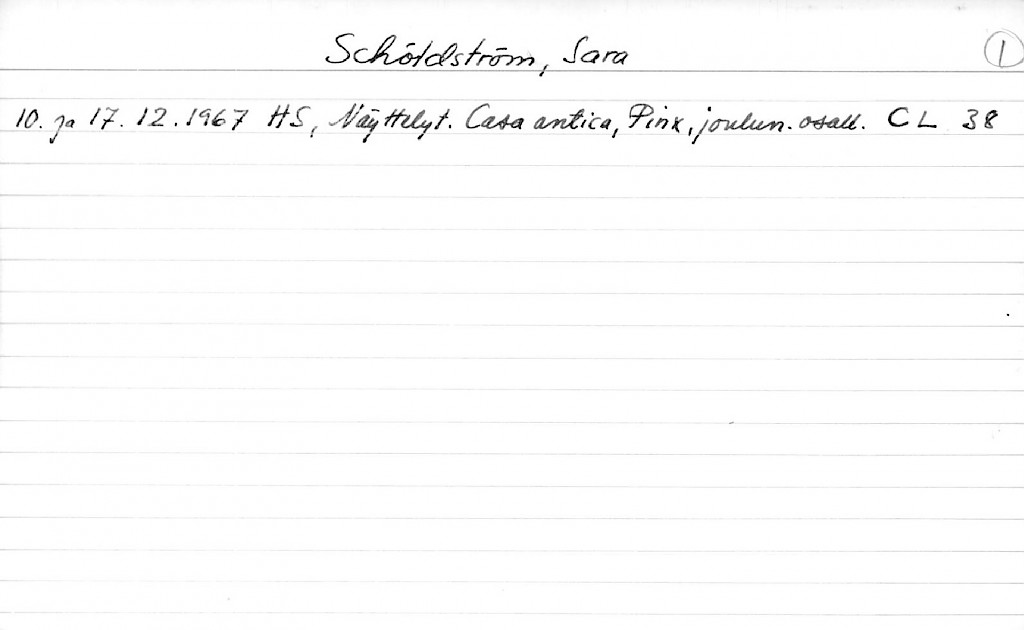 Schöldström, Sara 1
10. ja 17. 12. 1967 HS, Näyttelyt. Casa antica, Pinx, joulun. osall. CL 38